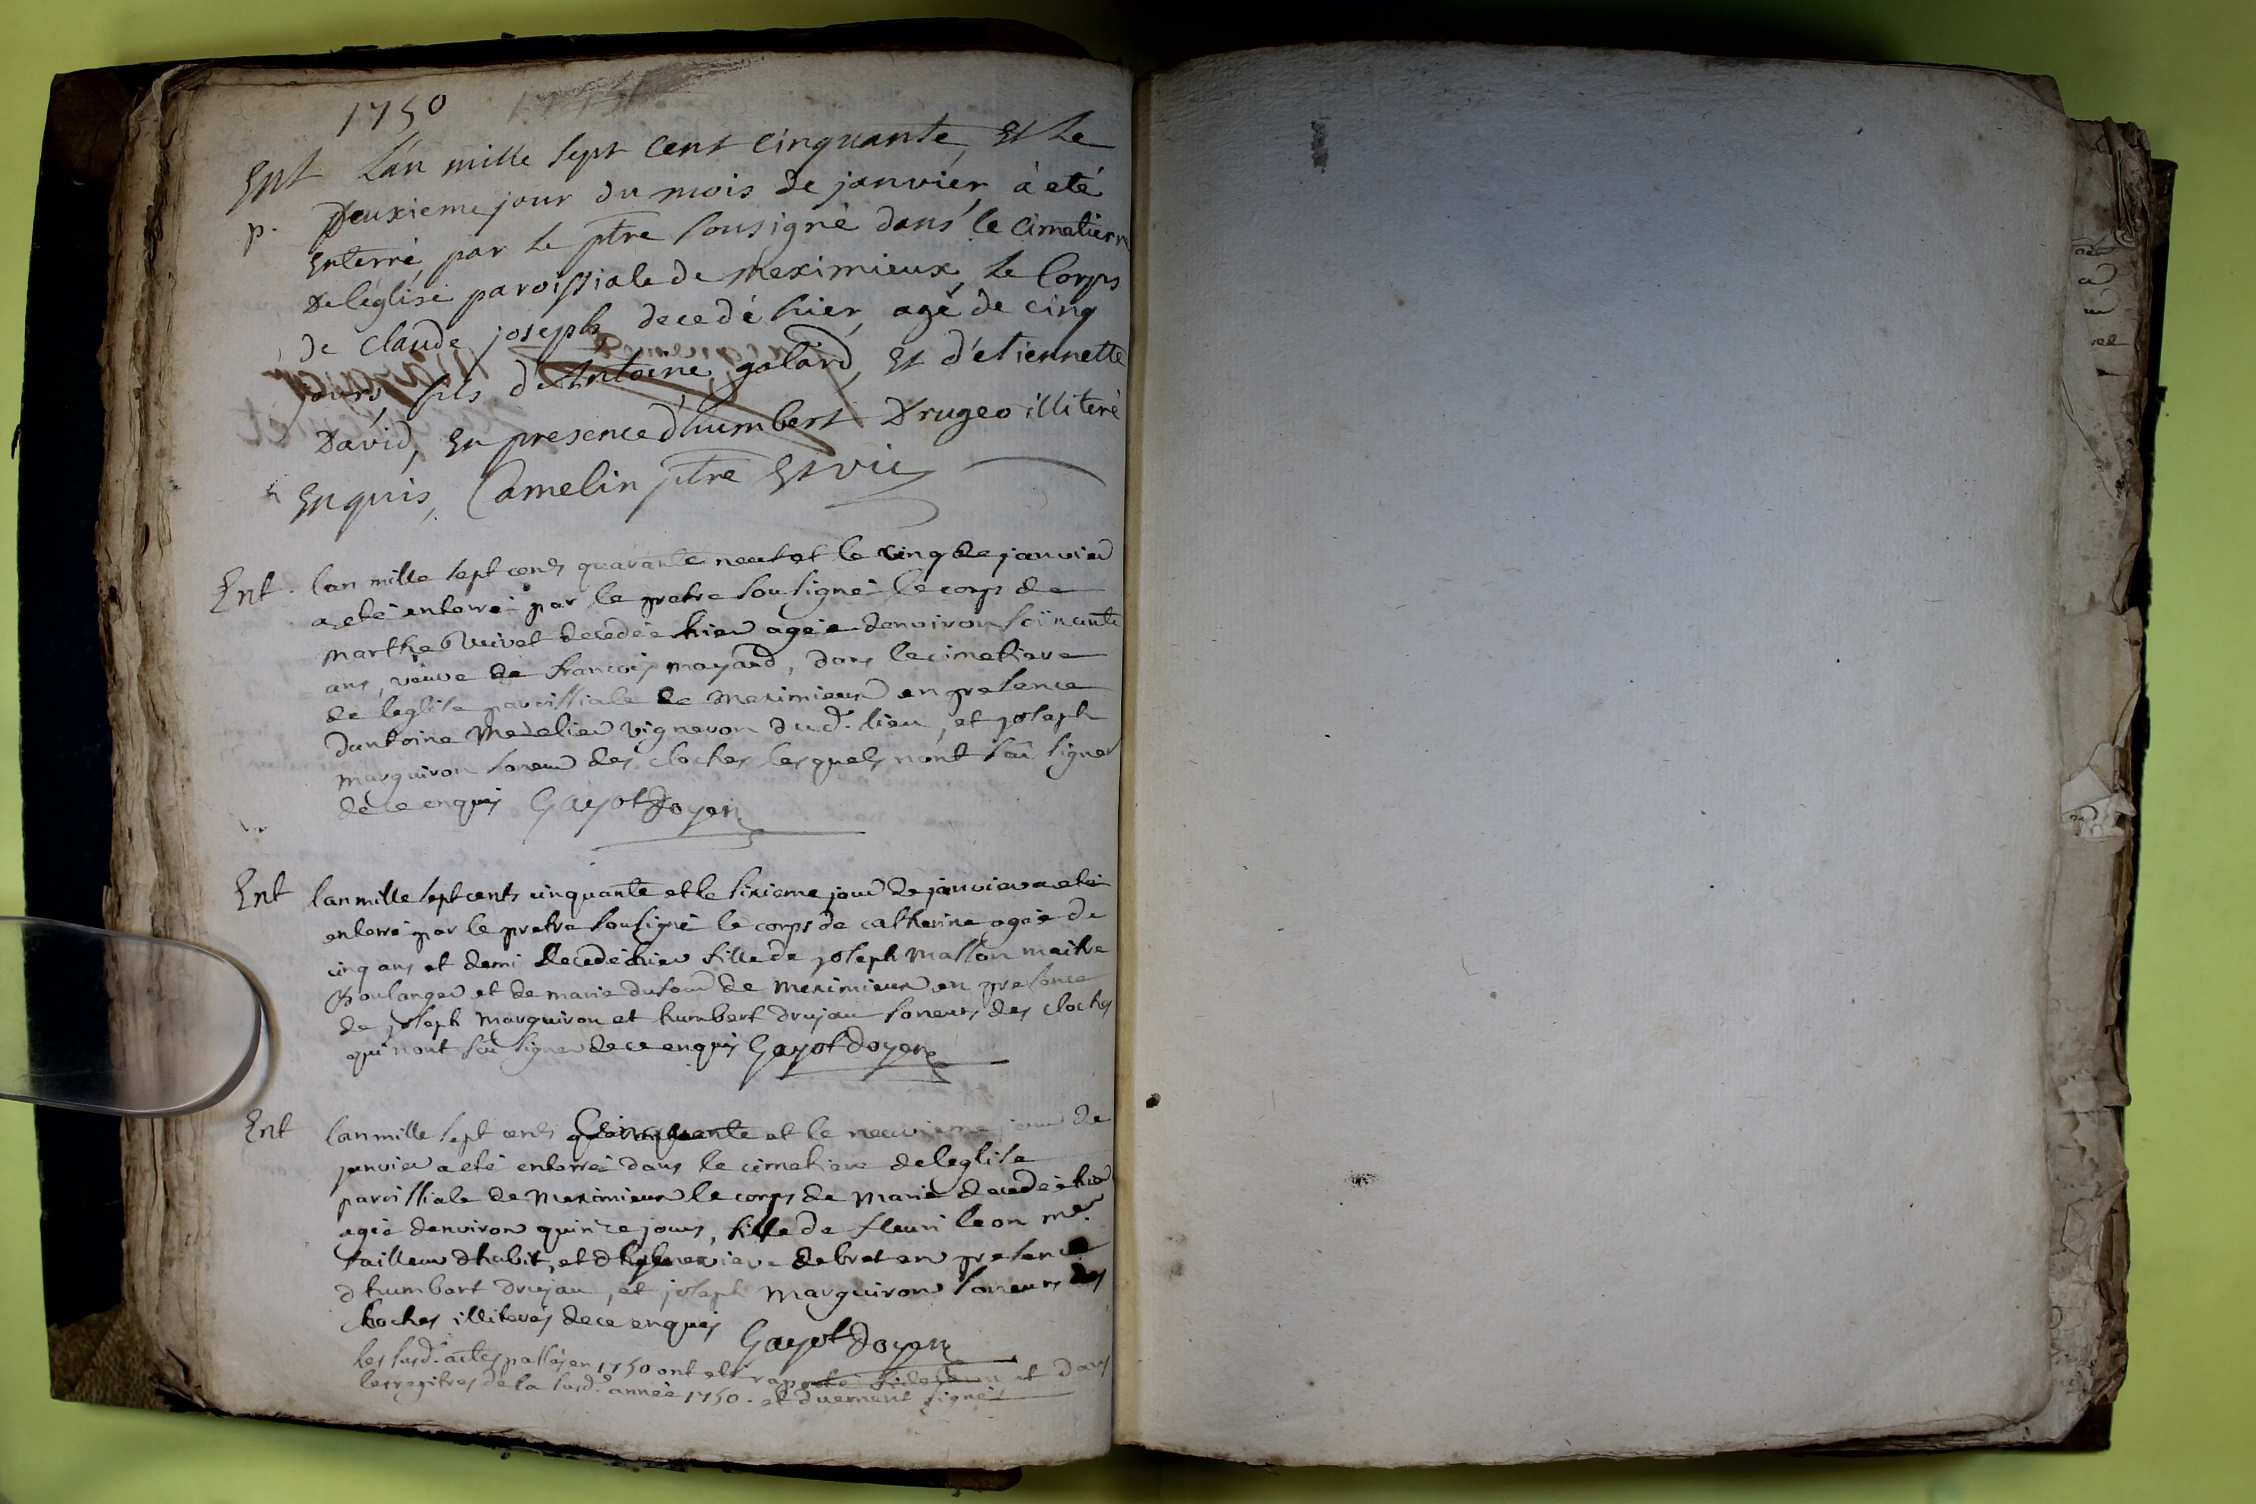 1750
Ent L'an mille sept cent cinquante, Et Le
p. Deuxieme jour du mois de janvier, à eté
Enterré par le ptre sousigné dans le cimetierre
De l'eglise paroissiale de meximieux, le Corps
de claude joseph decedé hier, agé de cinq
jours, fils d'Antoine galard, et d'etiennette
David, En presence d'humbert Drugeo illiteré
Enquis, Camelin ptre Et vic
Ent. lan mille sept cents quarante neuf et le cinq de janvier
a eté enterré par le pretre sousigné le corps de
marthe vuivet decedée hier agée denviron soixante
ans, veuve de francois mayard, dans le cimetiere
de leglise paroissiale de meximieux en presence
dantoine medelier vigneron dud. lieu, et joseph
marguiron soneur des cloches lesquels nont sçu signer
de ce enquis Gayot doyen
Ent lan mille sept cents cinquante et le sixieme jour de janvier a eté
enterré par le pretre sousigné le corps de catherine agée de
cinq ans et demi decedé hier fille de joseph masson maitre
Boulanger et de marie dufour de meximieux en presence
de joseph marguiron et humbert drujau soneurs des cloches
qui nont sçu signer de ce enquis Gayot doyen
Ent lan mille sept cents Cinquante et le neuvieme jour de
janvier a eté enterré dans le cimetiere de leglise
paroissiale de meximieux le corps de marie decedée hier
agée denviron quinze jours, fille de fleuri leon me.
tailleur dhabit, et debret en presence
dhumbert drujau, et joseph marguiron soneurs des
cloches illiterés de ce enquis Gayot doyen
les susd. actes passés en 1750 ont eté rapporté et dans
les regitres de la susd. année 1750. et duement signés